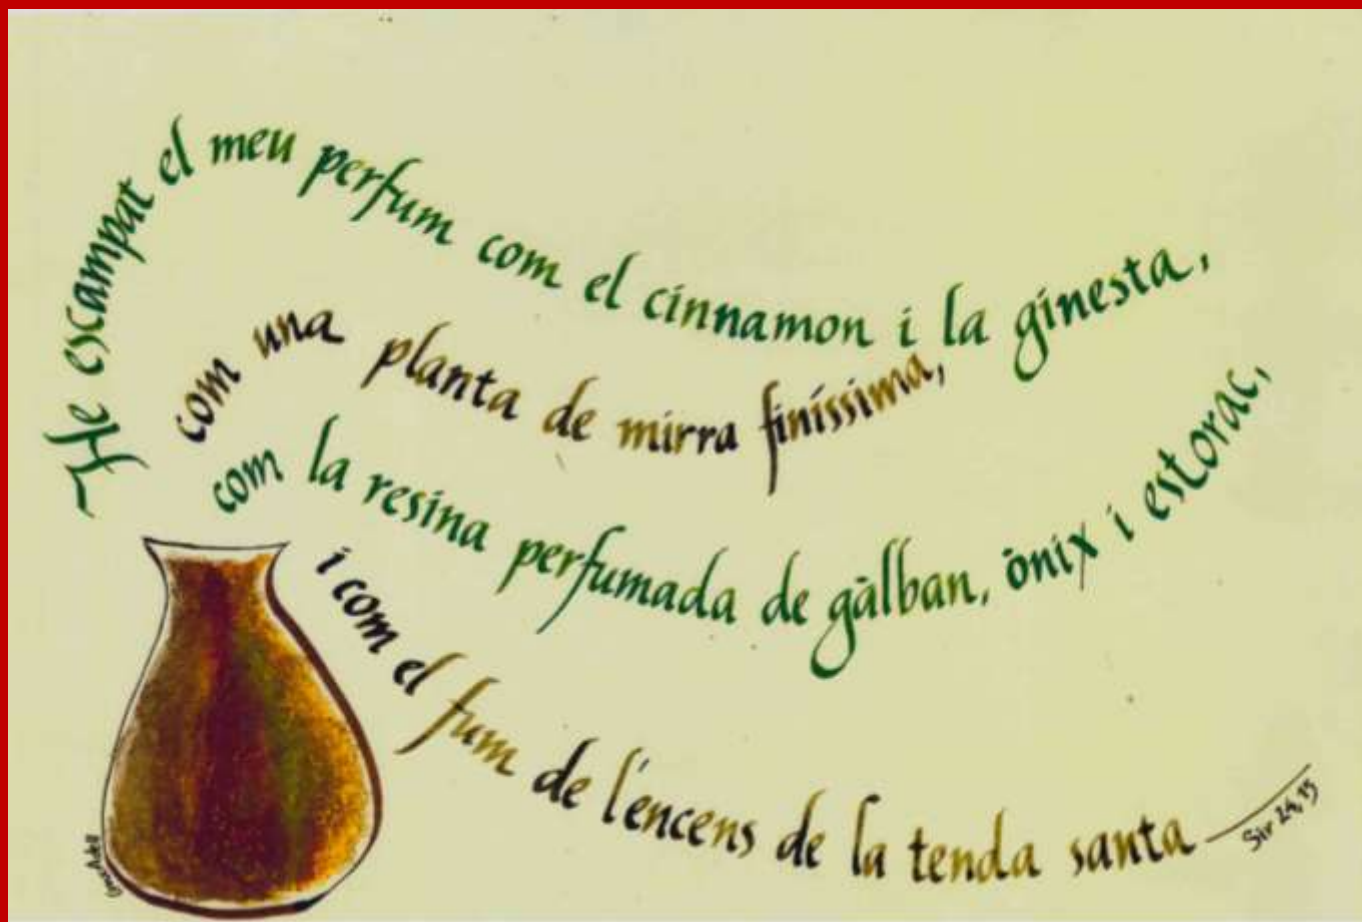 He escampat el meu perfum com el cinnamon i la ginesta,
com una planta de mirra finíssima,
com la resina perfumada de gàlban, ònix i estorac,
i com el fum de l'encens de la tenda santa
Sir 24,15